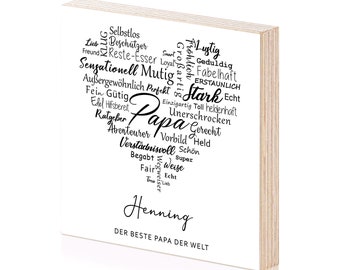 Selbstlos
Beschützer
Lieb
Freund
KLUG
Reste-Esser
Loyal
Großartig
Lustig
Geduldig
Fabelhaft
ERSTAUNLICH
Sensationell Mutig
Außergewöhnlich Perfekt
Stark Echt
Fein Gütig
Edel Hilfsbereit
Papa
Einzigartig Toll heldenhaft
Unerschrocken
Ratgeber
Genau Gerecht
Abenteurer Vorbild Held
Verständnisvoll
Schön
Begabt Super
Wegweiser
Weise
Fair
Echt
Treu
Henning
DER BESTE PAPA DER WELT